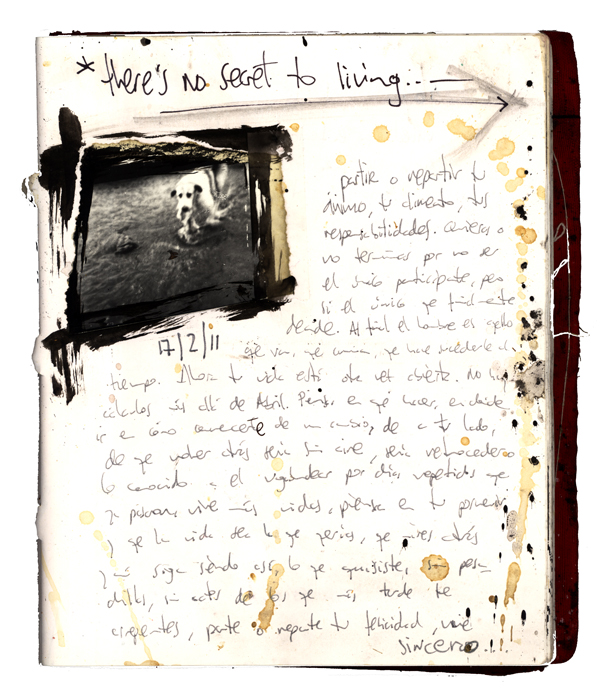 *there's no secret to living...
partir o repartir tu
ánimo, tu alimento, tus
responsabilidades. Quieras o
no terminas por no ser
el único participante, pero
si el único que finalmente
decide. Al final el hombre es aquello
17/2/11
que va, que camina, que hace sucederle al
tiempo. Ahora tu vida está otra vez abierta. No hagas
cálculos más allá de Abril. Piensa en qué hacer, en donde
ir en cómo convencerte de un cambio, de a tu lado,
de que volver atrás sería sin cine, sería retrocedero
lo conocido el vagabundear por días repetidos que
ya pasaron, vive más vidas, piensa en tu porvenir
y que la vida sea la que querías, que mires atrás
y siga siendo así, lo que quisiste, son pesa
dillas, sin antes de los que más tarde te
arrepientes, parte o reparte tu felicidad, vive
sincero...